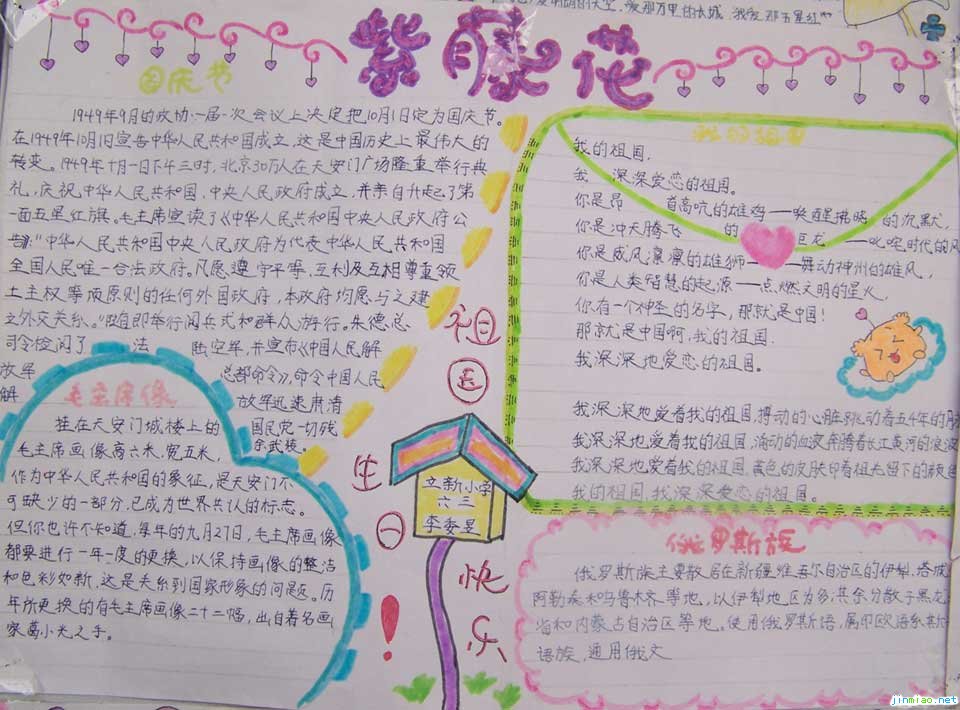 爱那万里的长城，我爱那五星红
紫藤花
国庆节
1949年9月的政协一届一次会议上决定把10月1日定为国庆节。
在1949年10月1日宣告中华人民共和国成立，这是中国历史上最伟大的
转变。1949年十月一日下午三时，北京30万人在天安门广场隆重举行典
礼，庆祝中华人民共和国，中央人民政府成立，并亲自升起了第
一面五星红旗。毛主席宣读了《中华人民共和国中央人民政府公
告》："中华人民共和国中央人民政府为代表中华人民共和国
全国人民唯一合法政府。凡愿遵守平等，互利及互相尊重领
土主权等项原则的任何外国政府，本政府均愿与之建
之外交关系。"随即举行阅兵式和群众游行。朱德总
司令检阅了 法 陆空军，并宣布《中国人民解
放军 总部命令》，命令中国人民
解 放军迅速肃清
国民党一切残
余武装。
毛主席像
挂在天安门城楼上的
毛主席画像高六米，宽五米，
作为中华人民共和国的象征，是天安门不
可缺少的一部分，已成为世界共认的标志。
但你也许不知道，每年的九月27日，毛主席画像
都要进行一年一度的更换，以保持画像的整洁
和色彩如新，这是关系到国家形象的问是页。历
年所更换的有毛主席画像二十二幅，出自着名画
家葛小光之手。
祖
国
生
日
快
乐
！
立新小学
六三
我的祖国
我的祖国，
我 深深爱恋的祖国。
你是昂 首高吭的雄鸡——唤醒拂晓 的沉默，
你是冲天腾飞 的 巨龙——叱咤时代的风
你是威风凛凛的雄狮——舞动神州的雄风，
你是人类智慧的起源——点燃文明的星火，
你有一个神圣的名字，那就是中国！
那就是中国啊，我的祖国。
我深深地爱恋的祖国。
我深深地爱着我的祖国，搏动的心脏跳动着五千年的
我深深地爱着我的祖国，涌动的血液奔腾着长江黄河的浪波
我深深地爱着我的祖国，黄色的皮肤印着祖先留下的颜色
我的祖国，我深深爱恋的祖国。
俄罗斯族
俄罗斯族主要散居在新疆维吾尔自治区的伊犁，塔城
阿勒泰和乌鲁木齐等地，以伊犁地区为多，其余分散于黑龙
省和内蒙古自治区等地。使用俄罗斯语，属印欧语系斯
语族，通用俄文
jinmiao.net